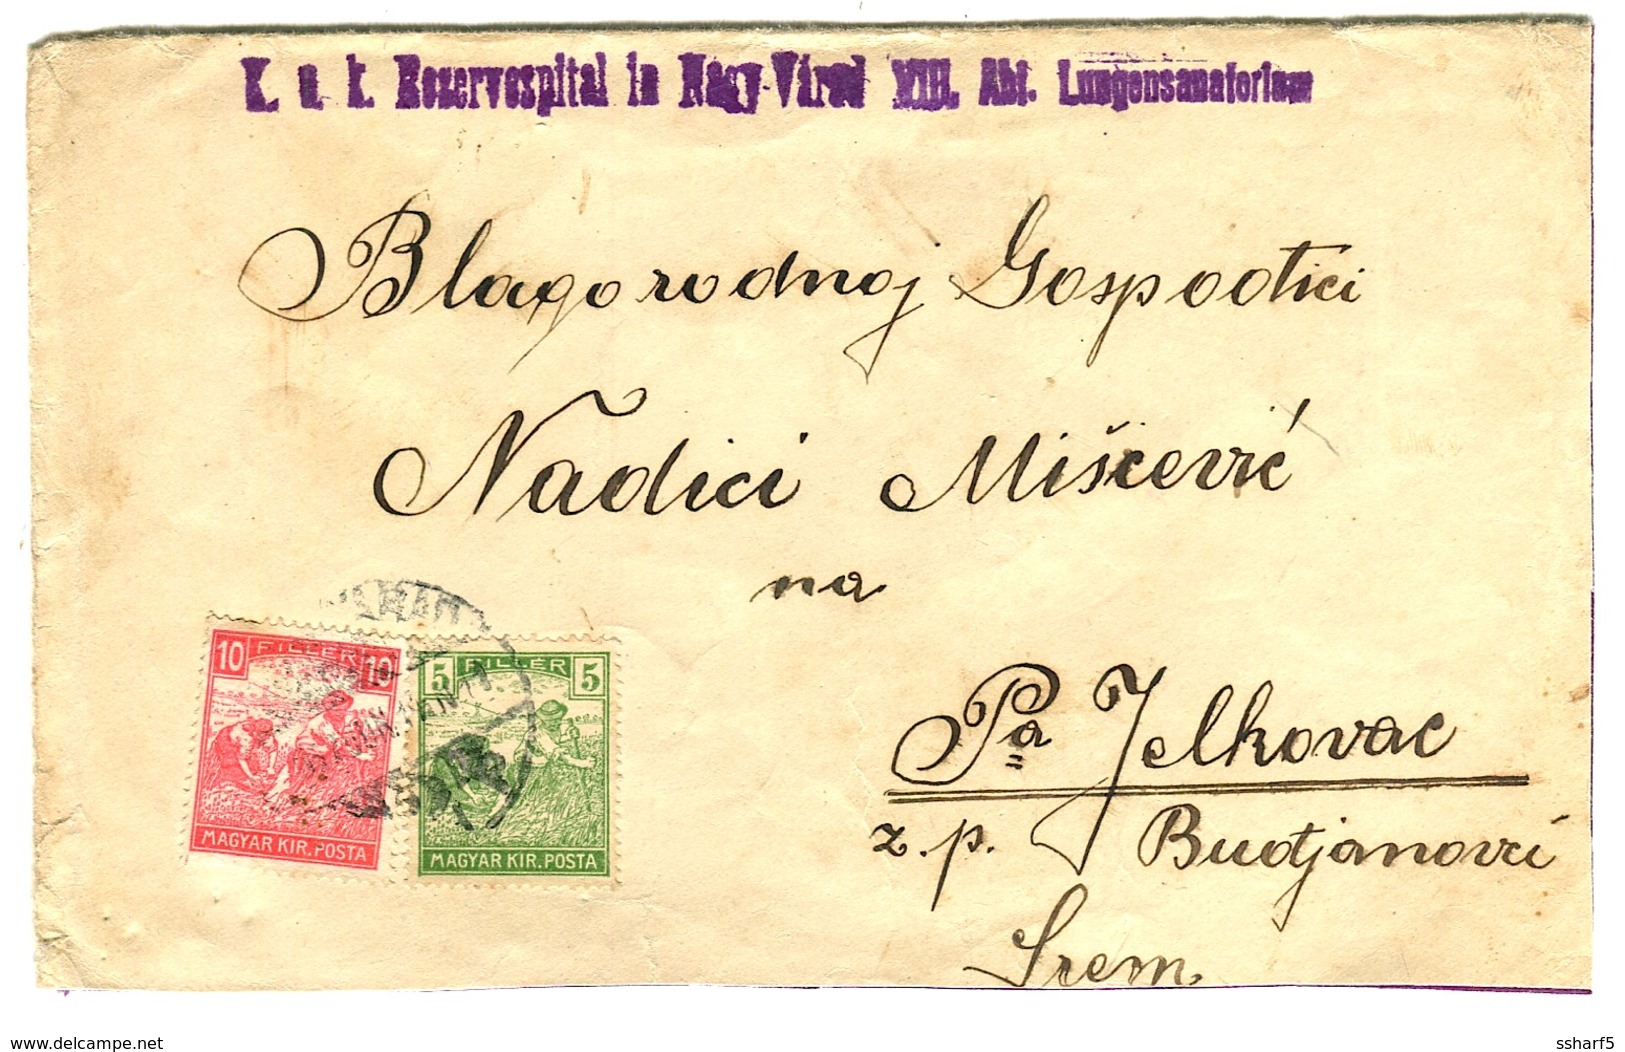 K. u. k. Reservespital in Nagy-Várad VIII. Abt. Lungensanatorium
Blagorodnoj Gospodici
Nadici Mišćević
na
Pa Jelkovac
z. p. Budjanovci
Srem
10 FILLÉR 10
MAGYAR KIR. POSTA
5 FILLÉR 5
MAGYAR KIR. POSTA
www.delcampe.net
ssharf5